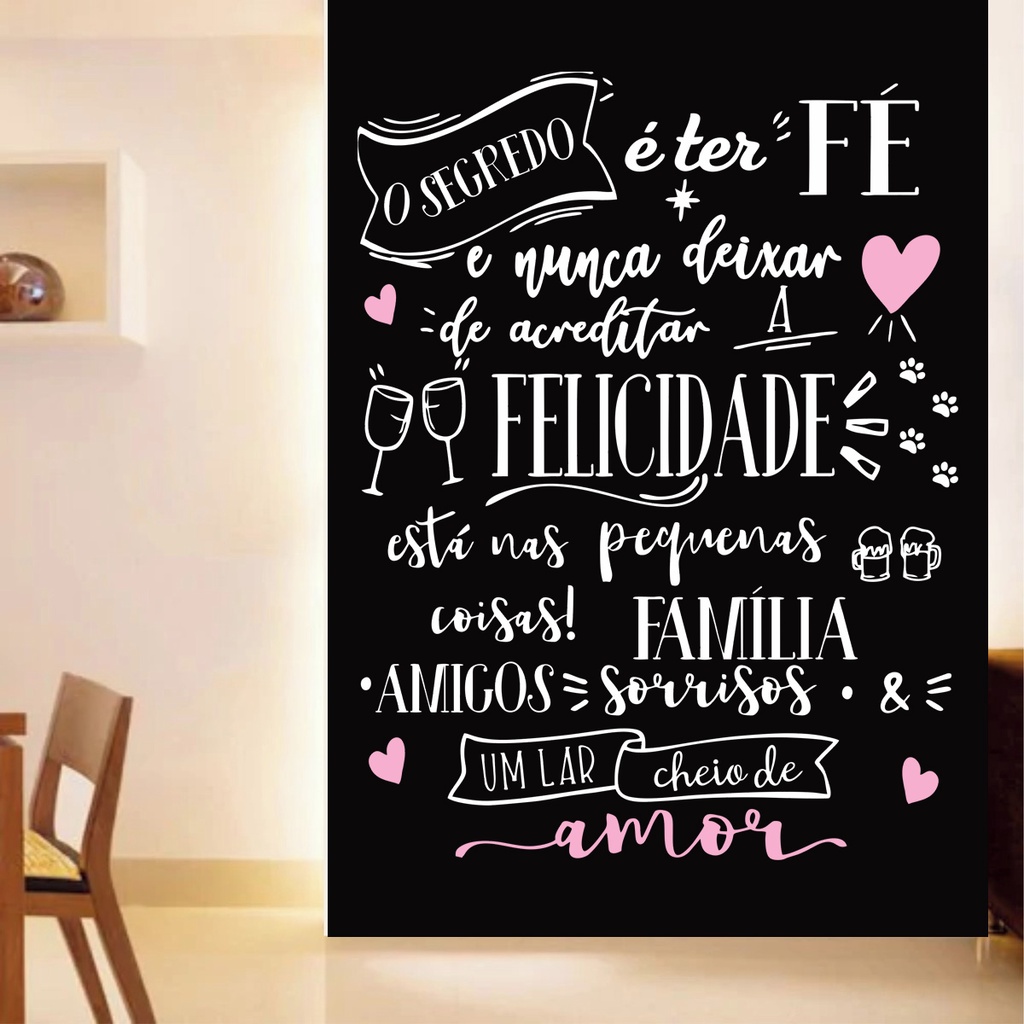 O SEGREDO é ter FÉ
e nunca deixar
de acreditar A
FELICIDADE
está nas pequenas
coisas! FAMÍLIA
•AMIGOS sorrisos • &
UM LAR cheio de
amor